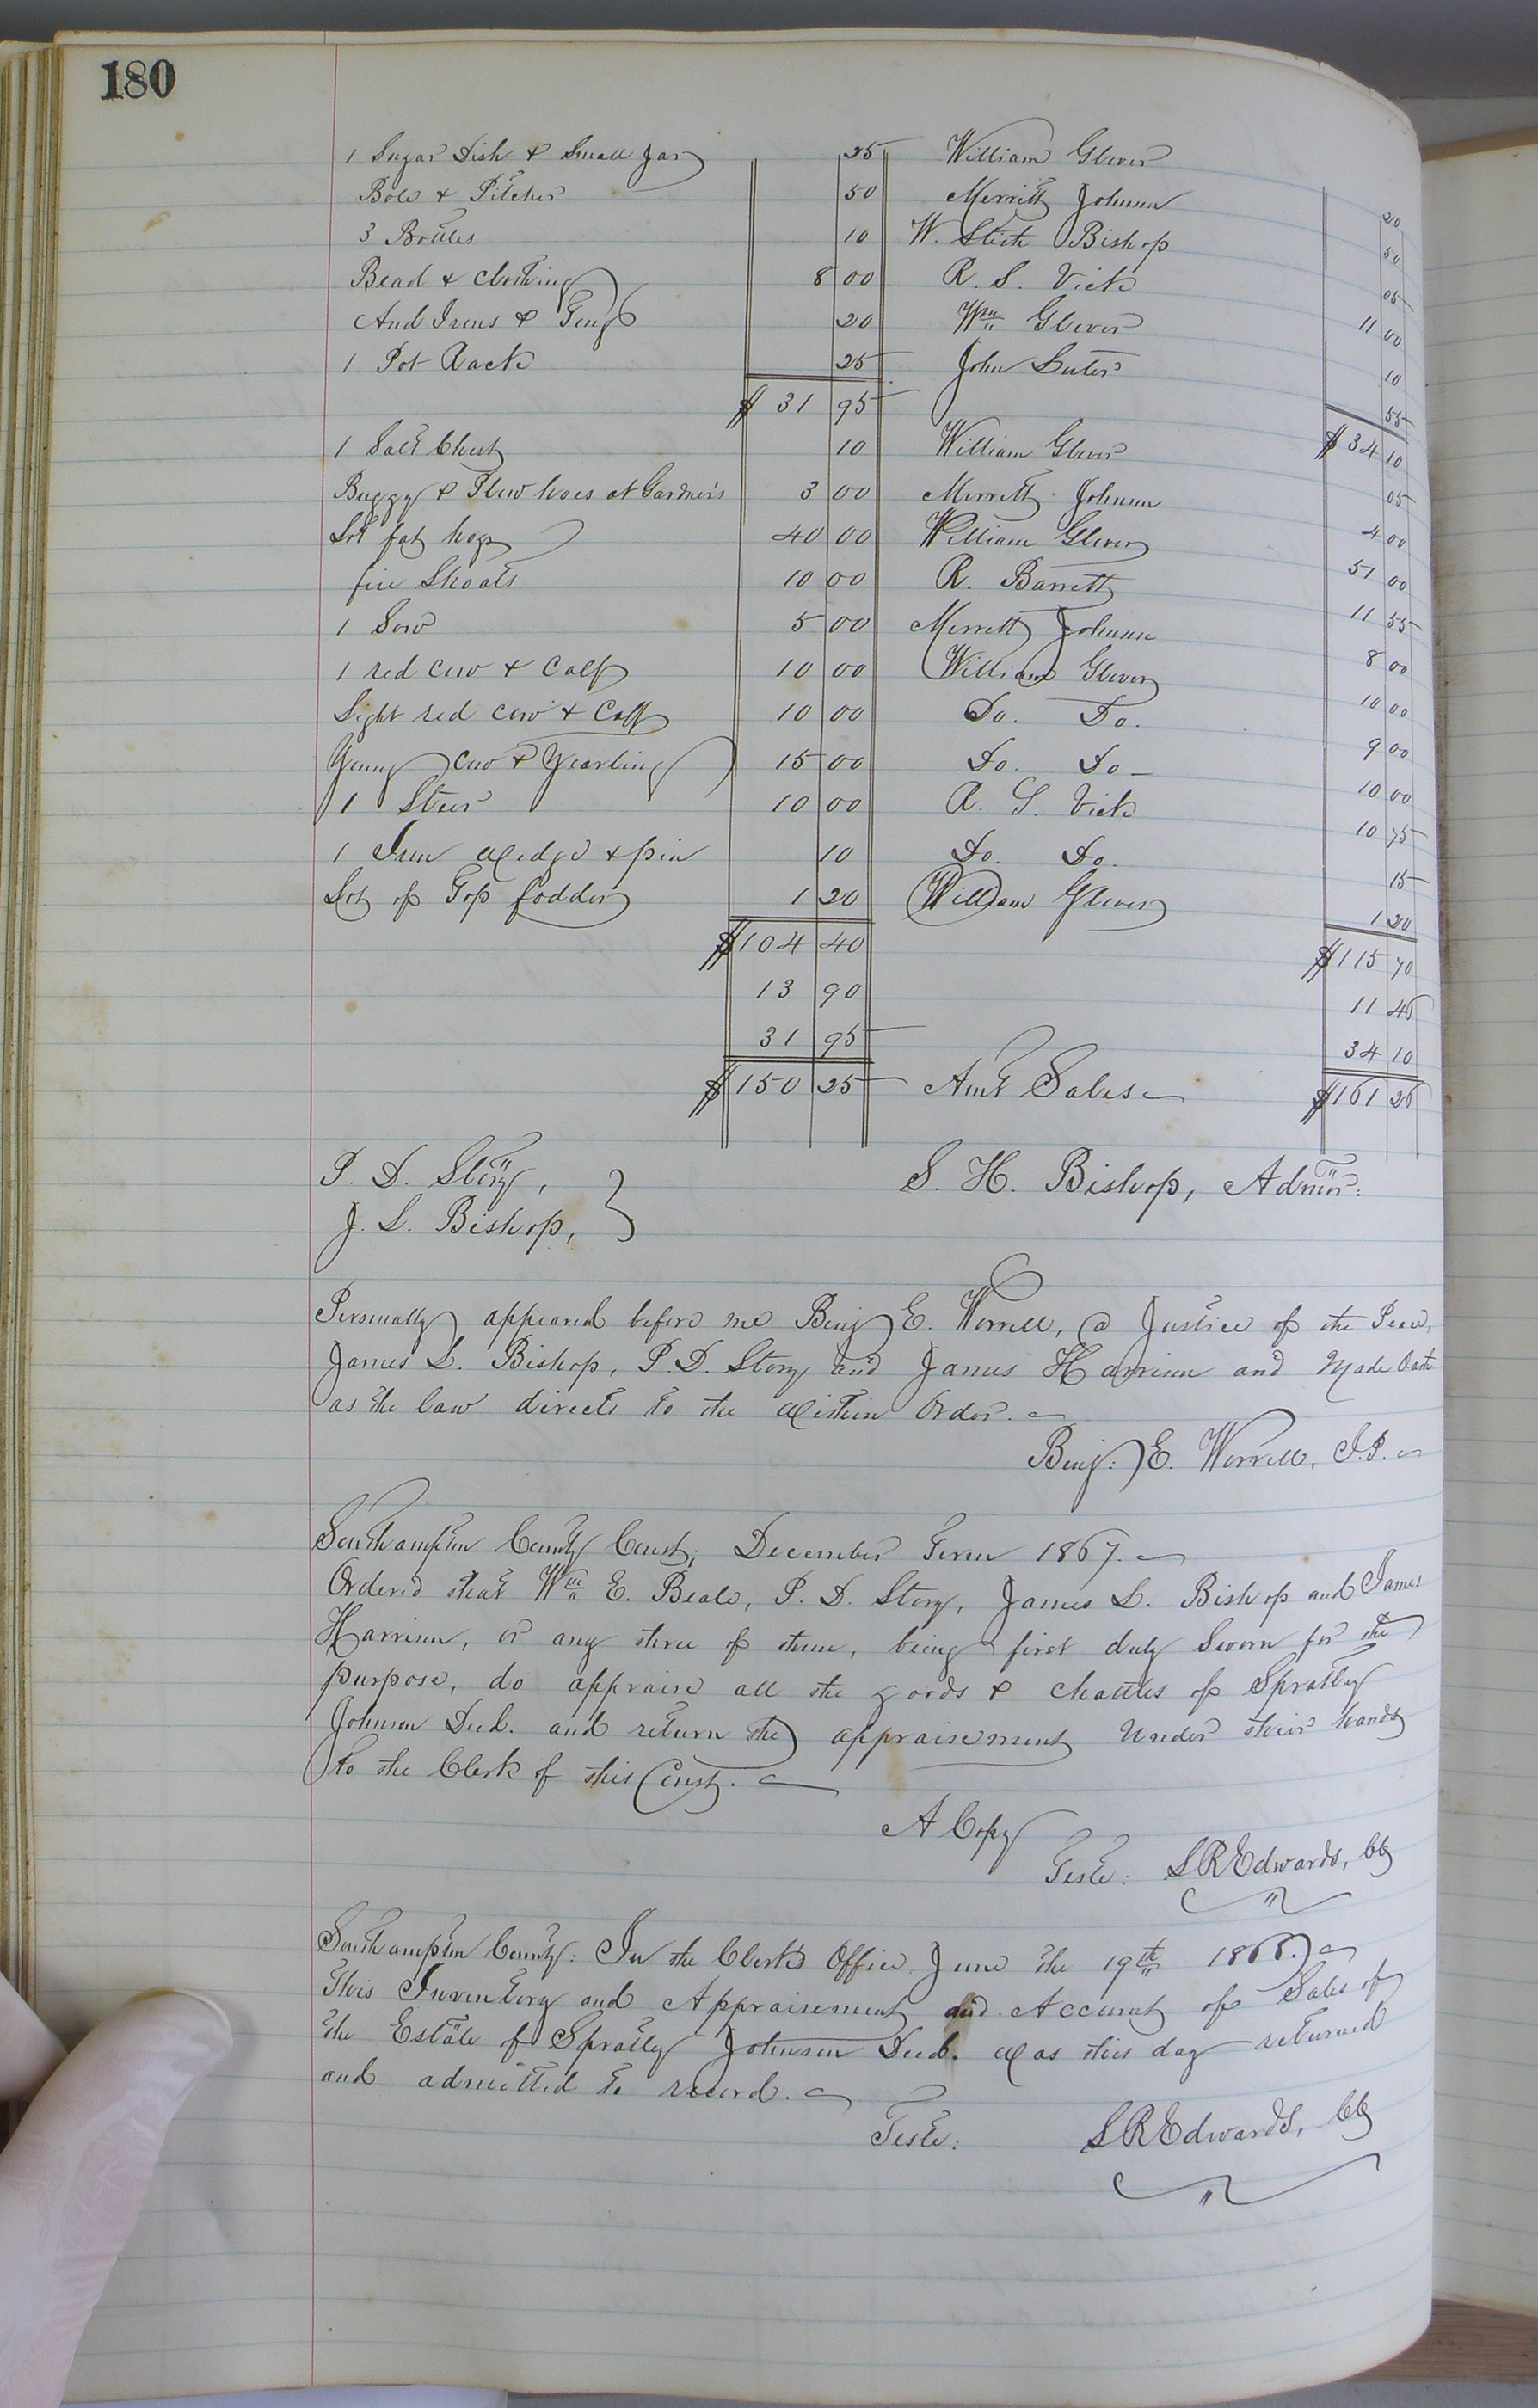 180
1 Sugar Dish & Small Jar 25 William Glover 20
Bole & Pitcher 50 Merritt Johnson 50
3 Bottles 10 W. Stith Bishop 05
Bead & Clothing 8 00 R. S. Vick 11 00
And Irons & Tongs 20 Wm Glover 10
1 Pot Rack 25 John Suter 55
$ 31 95 $ 34 10
1 Salt Chest 10 William Glover 05
Buggy & Plow hoes at Gardner's 3 00 Merritt Johnson 4 00
Lot fat hogs 40 00 William Glover 51 00
five Shoats 10 00 R. Barrett 11 55
1 Sow 5 00 Merrett Johnson 8 00
1 red cow & Calf 10 00 William Glover 10 00
Light red cow & Calf 10 00 Do. Do. 9 00
Young cow & Yearling 15 00 Do. Do- 10 00
1 Steer 10 00 R. S. Vick 10 75
1 Iron Wedge & pin 10 Do. Do. 15
Lot of Top fodder 1 20 William Glover 1 20
$ 104 40 $ 115 70
13 90 11 46
31 95 34 10
$ 150 25 Amt Sales $ 161 26
P. D. Story, S. H. Bishop, Admor.
J. L. Bishop,
Personally appeared before me Benj E. Worrell, a Justice of the Peace,
James L. Bishop, P. D. Story and James Harrison and Made Oath
as the law directs to the Within Order.
Benj: E. Worrell, J.P.
Southampton County Court, December Term 1867.
Ordered that Wm E. Beale, P. D. Story, James L. Bishop and James
Harrison, or any three of them, being first duly Sworn for the
purpose, do appraise all the goods & chattles of Spratley
Johnson Decd. and return the appraisement Under their hands
to the Clerk of this Court.
A Copy
Teste: L R Edwards, Clk
Southampton County: In the Clerk's Office June the 19th 1868.
This Inventory and Appraisement and Account of Sales of
the Estate of Spratley Johnson Decd. Was this day returned
and admitted to record.
Teste: L R Edwards, Clk